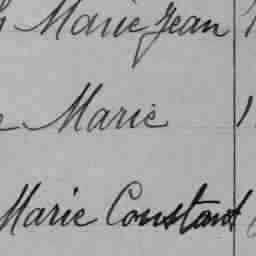 Marie Jean
Marie
Marie Constant